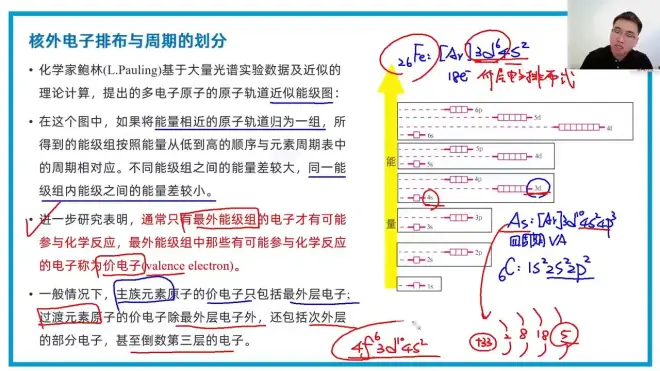 核外电子排布与周期的划分
• 化学家鲍林(L.Pauling)基于大量光谱实验数据及近似的
理论计算，提出的多电子原子的原子轨道近似能级图：
• 在这个图中，如果将能量相近的原子轨道归为一组，所
得到的能级组按照能量从低到高的顺序与元素周期表中
的周期相对应。不同能级组之间的能量差较大，同一能
级组内能级之间的能量差较小。
• 进一步研究表明，通常只有最外能级组的电子才有可能
参与化学反应，最外能级组中那些有可能参与化学反应
的电子称为价电子(valence electron)。
• 一般情况下，主族元素原子的价电子只包括最外层电子；
过渡元素原子的价电子除最外层电子外，还包括次外层
的部分电子，甚至倒数第三层的电子。
4f⁶3d¹⁰4s²
₂₆Fe: [Ar]3d⁶4s²
18e⁻ 价层电子排布式
能
量
6p
5d
4f
6s
5p
4d
5s
4p
3d
4s
3p
3s
2p
2s
1s
As: [Ar]3d¹⁰4s²4p³
四周期 VA
₆C: 1s²2s²2p²
+33 2 8 18 5